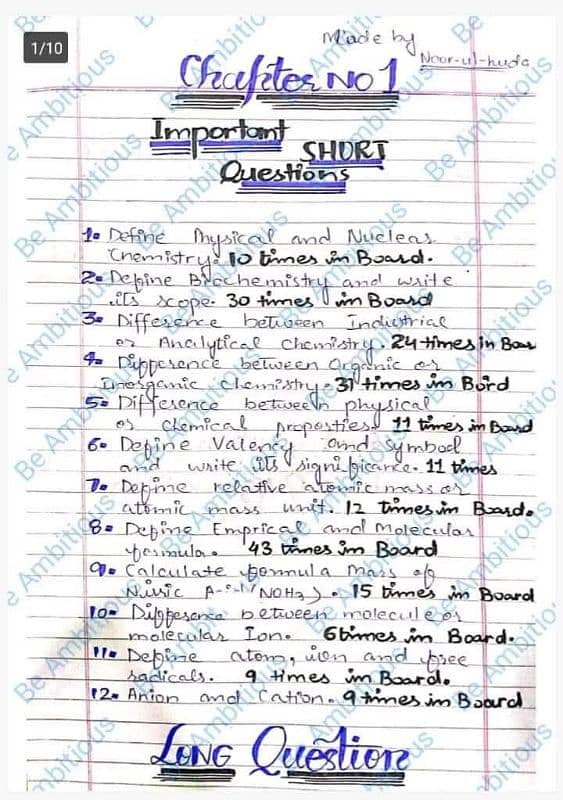 1/10
Made by
Noor-ul-huda
Chapter No 1
Important
SHORT
Questions
1. Define Physical and Nuclear
Chemistry. 10 times in Board.
2. Define Biochemistry and write
its scope. 30 times in Board
3. Difference between Industrial
or Analytical Chemistry. 24 times in Boar
4. Difference between Organic or
Inorganic Chemistry. 31 times in Bord
5. Difference between physical
or chemical properties. 11 times in Board
6. Define Valency and symbol
and write its significance. 11 times
7. Define relative atomic mass or
atomic mass unit. 12 times in Board.
8. Define Emprical and Molecular
formula. 43 times in Board
9. Calculate formula Mass of
Nitric 15 times in Board
10. Difference between molecule or
molecular Ion. 6 times in Board.
11. Define atom, ion and free
radicals. 9 times in Board.
12. Anion and Cation. 9 times in Board
LONG Question
Be Ambitious